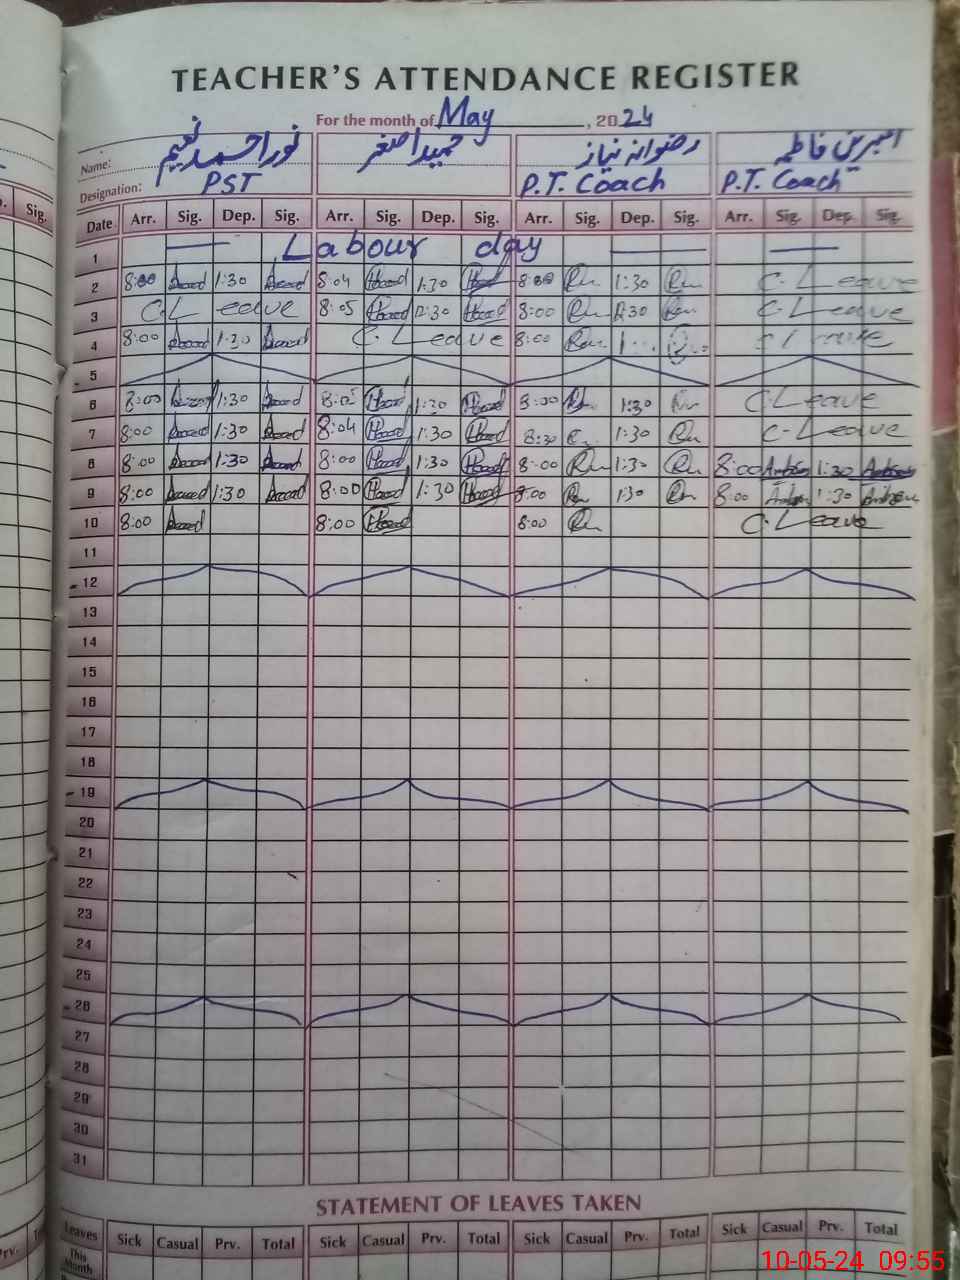 TEACHER'S ATTENDANCE REGISTER
For the month of May, 2024
Name: نور احمد نعیم حمید اصغر رضوانہ نیاز امبرین فاطمہ
Designation: PST P.T. Coach P.T. Coach
Date Arr. Sig. Dep. Sig. Arr. Sig. Dep. Sig. Arr. Sig. Dep. Sig. Arr. Sig. Dep. Sig.
1 Labour day
2 8:00 1:30 8:04 1:30 8:00 1:30 C. Leave
3 C.L eave 8:05 12:30 8:00 C. Leave
4 8:00 1:30 C. Leave 8:00
5
6 8:00 1:30 1:30 1:30 C. Leave
7 8:00 1:30 8:04 1:30 8:30 1:30 C. Leave
8 8:00 1:30 8:00 1:30 8:00 1:30 8:00 1:30
9 8:00 1:30 8:00 1:30 8:00 1:30 8:00 1:30
10 8:00 8:00 8:00 C. Leave
11
12
13
14
15
16
17
18
19
20
21
22
23
24
25
26
27
28
29
30
31
STATEMENT OF LEAVES TAKEN
Leaves Sick Casual Prv. Total Sick Casual Prv. Total Sick Casual Prv. Total Sick Casual Prv. Total
This Month
10-05-24 09:55